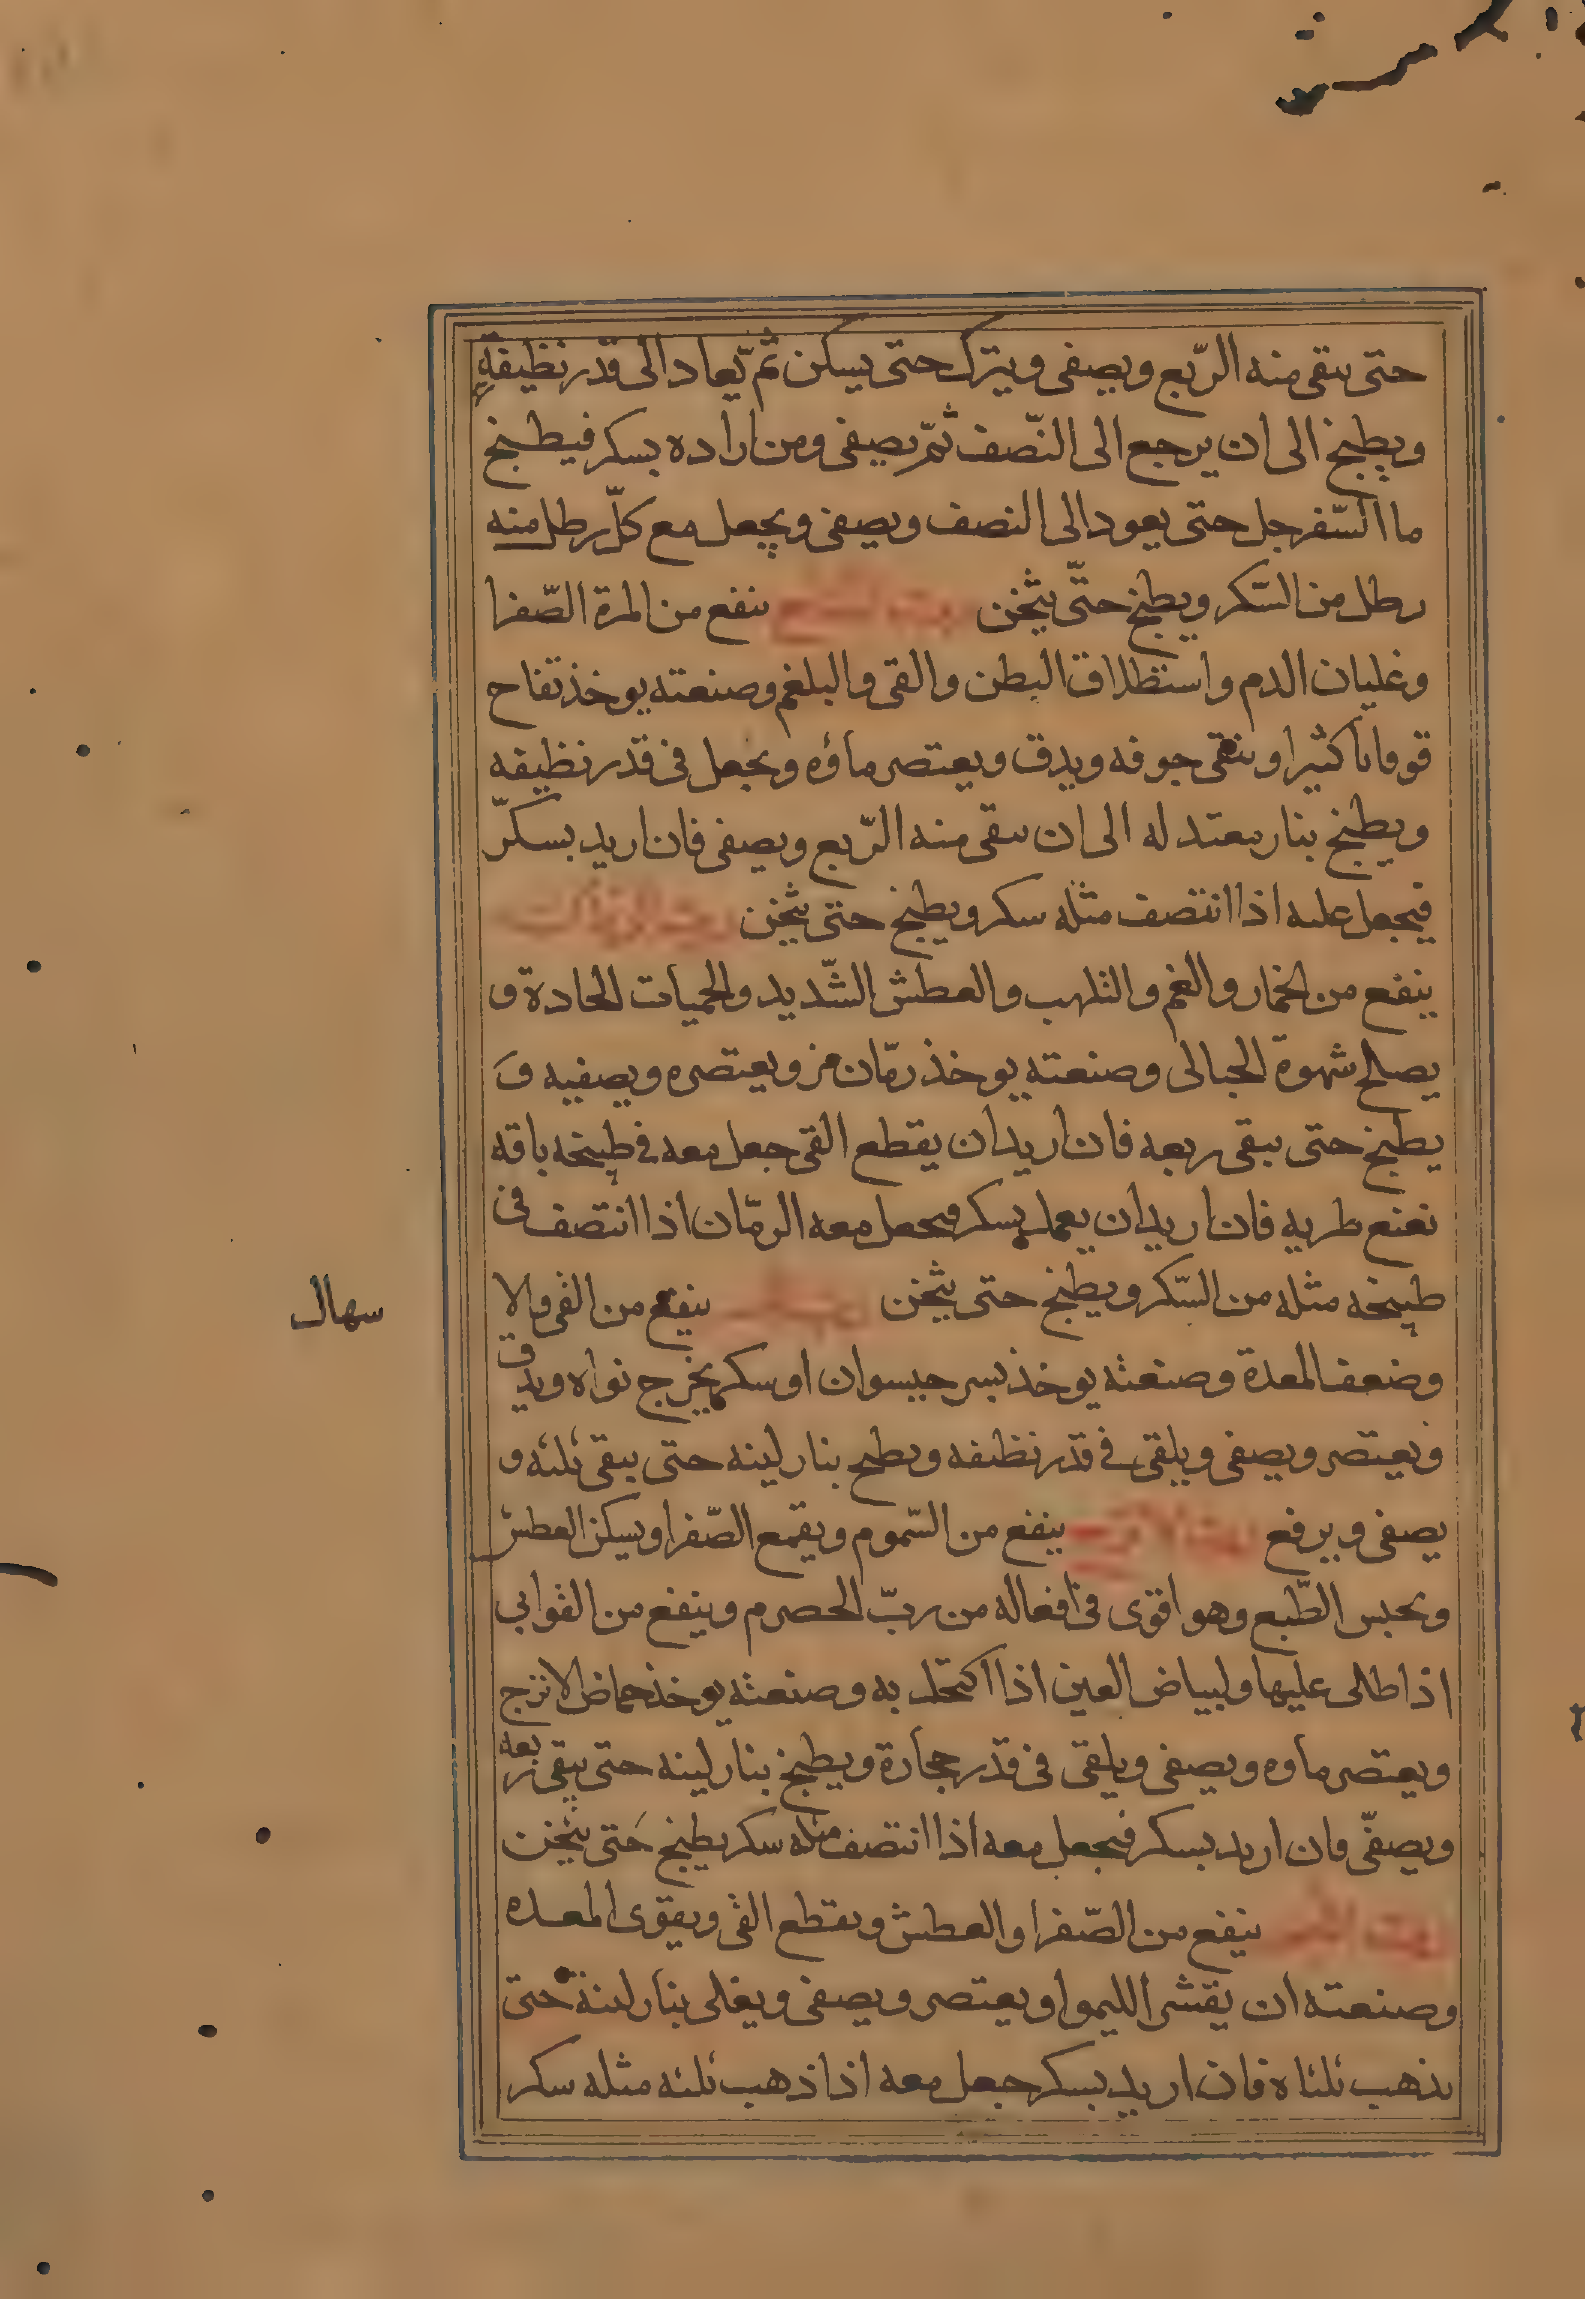 حتى يبقى منه الرّبع ويصفى ويترك حتى يسكن ثم يعاد الى قدر نظيفة
ويطبخ الى ان يرجع الى النّصف ثمّ يصفى ومن اراده بسكر فيطبخ
ما السّفرجل حتى يعود الى النصف ويصفى ويجعل مع كلّ رطل منه
رطل من السّكر ويطبخ حتّى يثخن ينفع من المرة الصّفرا
وغليان الدم واستطلاق البطن والقى والبلغم وصنعته يوخذ تفاح
كثيرا وينقى جوفه ويدق ويعتصر ماؤه ويجعل فى قدر نظيفه
ويطبخ بنار معتدله الى ان يبقى منه الرّبع ويصفى فان اريد بسكرّ
فيجعل عليه اذا انتصف مثله سكر ويطبخ حتى يثخن
ينفع من الخمار والغم والتلهب والعطش الشّديد والحميات الحادة و
يصلح شهوة الحبالى وصنعته يوخذ رمّان مز ويعتصره ويصفيه وَ
يطبخ حتى يبقى ربعه فان اريد ان يقطع القى جعل معه فى طبيخه باقه
نعنع طريه فان اريد ان يعمل بسكر فيجعل معه الرمّان اذا انتصف فى
طبيخه مثله من السّكر ويطبخ حتى يثخن ينفع من القى والا
سهال
وضعف المعدة وصنعته يوخذ بسر جيسوان او سكر يخرج نواه ويدق
ويعتصر ويصفى ويلقى فى قدر نظيفه ويطبخ بنار لينه حتى يبقى ثلثه و
يصفى ويرفع ينفع من السّموم ويقمع الصّفرا ويسكن العطش
ويحبس الطّبع وهو اقوى فى افعاله من ربّ الحصرم وينفع من القوابى
اذا طلى عليها ولبياض العين اذا اكتحل به وصنعته يوخذ حماض الاترج
ويعتصر ماوه ويصفى ويلقى فى قدر حجارة ويطبخ بنار لينه حتى يبقى ربعه
ويصفّى وان اريد بسكر فيجعل معه اذا انتصف مثله سكر يطبخ حَتى يثخن
ربّ ينفع من الصّفرا والعطش ويقطع القى ويقوى المعده
وصنعته ان يقشر الليموا ويعتصر ويصفى ويغلى بنار لينة حتى
يذهب ثلثاه فان اريد بسكر جعل معه اذا ذهب ثلثه مثله سكر